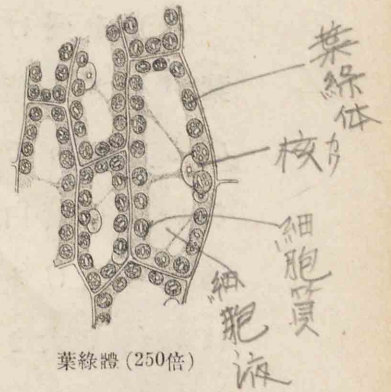 葉緑体
核カク
細胞質
細胞液
葉綠體 (250倍)